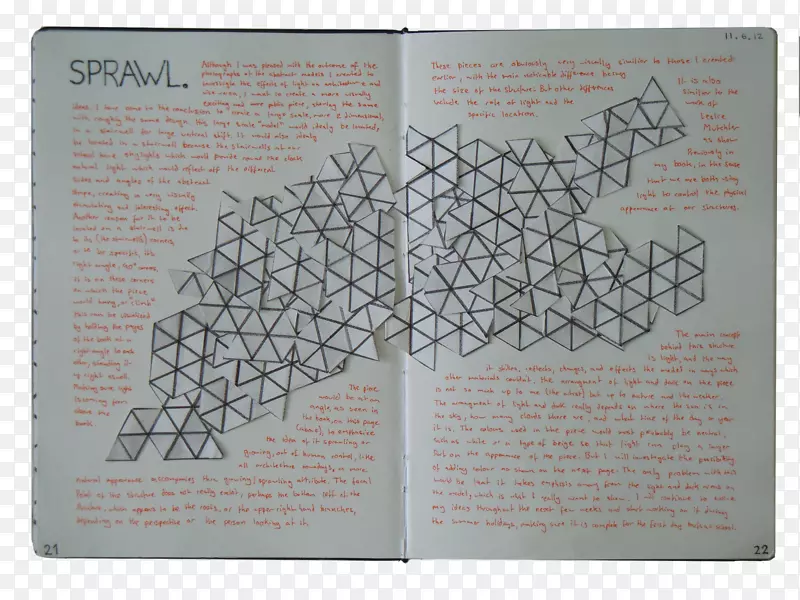 SPRAWL.
Although I was pleased with the outcome of the
photographs of the abstract models I wanted to
investigate the effects of light on architecture and
use more, I want to create a more visually
exciting and more public piece, sharing the same
ideas I have come to the conclusion to create a large scale, more 2 dimensional,
with roughly the same design. This large scale "model" would ideally be located,
in a stairwell for large vertical shift. It would also ideally
be located in a stairwell because the stairwells at our
school have skylights which would provide round the clock
natural light which would reflect off the different
sides and angles of the abstract
shape, creating a very visually
stimulating and interesting effect.
Another reason for it to be
located on a stairwell is due
to its (the stairwells) corners,
or to be specific, its
right angle, 90° ones.
It is on these corners
on which the piece
would hang, or "climb"
this can be visualised
by holding the pages
of the book at a
right angle to each
other, standing it
up right as well.
Making sure light
is coming from
above the
book.
The piece
would be at an
angle, as seen in
the book, on this page
(above), to emphasize
the idea of it sprawling or
growing, out of human control, like
all architecture nowadays, a more
natural appearance accompanies this growing/sprawling attribute. The focal
point of the structure does not really exist, perhaps the bottom left of the
structure, which appears to be the roots, or the upper right hand branches,
depending on the perspective of the person looking at it.
21
11.6.12
These pieces are obviously very visually similar to those I created
earlier, with the main noticeable difference being
the size of the structure. But other differences
include the role of light and the
specific location.
It is also
similar to the
work of
Leslie
Mutchler
as shown
previously in
my book, in the sense
that we are both using
light to control the physical
appearance of our structures.
The main concept
behind this structure
is light, and the way
it shines, reflects, changes, and effects the model in ways which
other materials couldn't. The arrangement of light and dark on the piece
is not so much up to me (the artist) but up to nature and the weather.
The arrangement of light and dark really depends on where the sun is in
the sky, how many clouds there are, and what time of the day or year
it is. The colours used in the piece would most probably be neutral,
such as white or a type of beige so that light can play a larger
part on the appearance of the piece. But I will investigate the possibility
of adding colour as shown on the next page. The only problem with this
would be that it takes emphasis away from the light and dark areas on
the model, which is what I really want to show. I will continue to evolve
my ideas throughout the next few weeks and start working on it during
the summer holidays, making sure it is complete for the first day back at school.
22